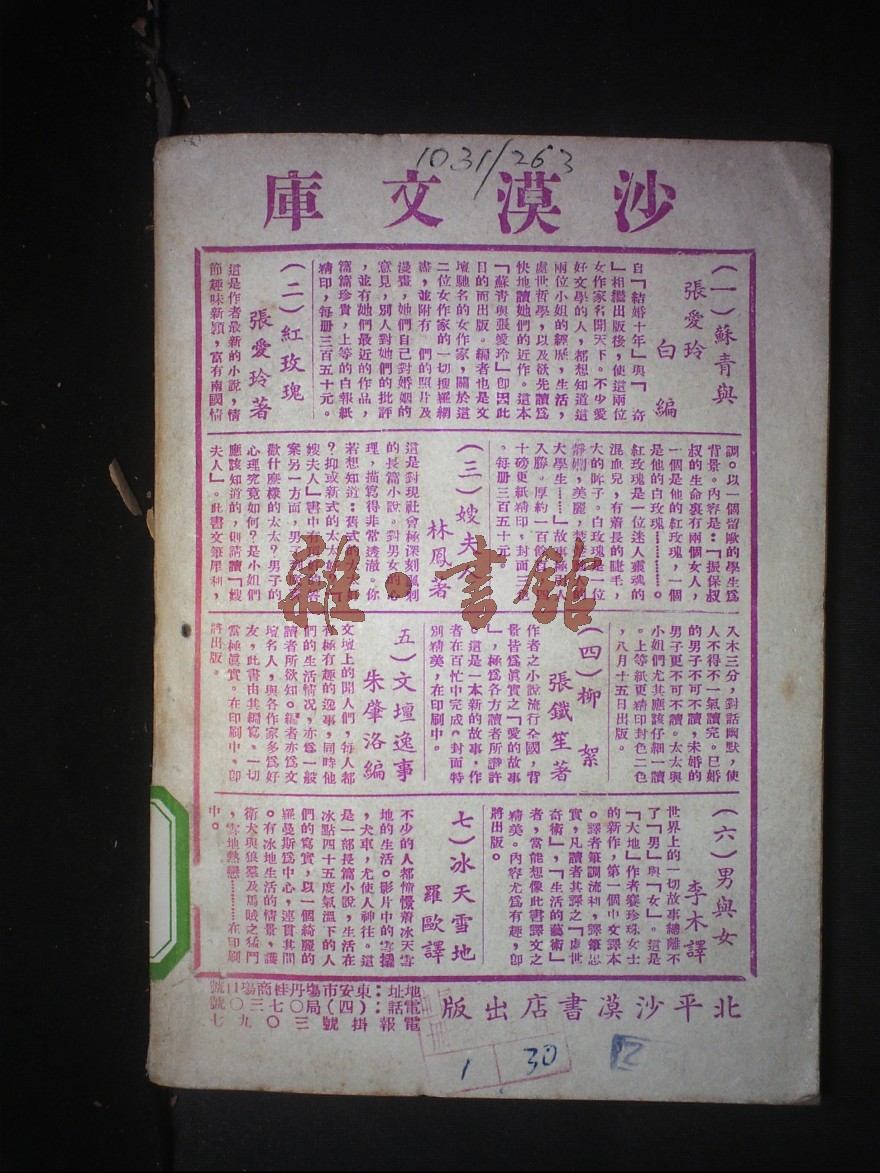 1031/263
沙漠文庫
(一)蘇青與
張愛玲
白 編
自「結婚十年」與「 奇
」相繼出版後,使這兩位
女作家名聞天下。不少愛
好文學的人,都想知道這
兩位小姐的經歷,生活,
處世哲學,以及欲先讀為
快地讀她們的近作。這本
「蘇青與張愛玲」卽因此
目的而出版。編者也是文
壇馳名的女作家,關於這
二位女作家的一切搜羅網
盡,並附有 們的照片及
漫畫,她們自己對婚姻的
意見,別人對她們的批評
,並有她們最近的作品,
篇篇珍貴,上等的白報紙
精印,每册三百五十元。
(二)紅玫瑰
張愛玲著
這是作者最新的小說,情
節趣味新穎,富有南國情
調。以一個留歐的學生為
背景。內容是:「振保叔
叔的生命裏有兩個女人,
一個是他的紅玫瑰,一個
是他的白玫瑰…………。
紅玫瑰是一位迷人靈魂的
混血兒,有着長的睫毛,
大的眸子。白玫瑰是一位
靜嫻,美麗,
大學生……」故事極
入勝。厚約一百餘
十磅更紙精印,封面
。每册三百五十元
(三)嫂夫
林鳳著
這是對現社會極深刻諷刺
的長篇小說。對男女的心
理,描寫得非常透澈。你
若想知道:舊式的太太好
?抑或新式的太太好?「
嫂夫人」書中有很好的答
案另一方面,男子到底喜
歡什麼樣的太太?男子的
心理究竟如何?是小姐們
應該知道的,則請讀「嫂
夫人」。此書文筆犀利,
入木三分,對話幽默,使
人不得不一氣讀完。已婚
的男子不可不讀,未婚的
男子更不可不讀。太太與
小姐們尤其應該仔細一讀
。上等紙更精印封色二色
,八月十五日出版。
(四)柳絮
張鐵笙著
作者之小說流行全國,背
景皆為眞實之「愛的故事
」,極為各方讀者所讚許
。這是一本新的故事,作
者在百忙中完成。封面特
別精美,在印刷中。
五)文壇逸事
朱肇洛編
文壇上的聞人們,每人都
有極有趣的逸事,同時他
們的生活情况,亦為一般
讀者所欲知。編者亦為文
壇名人,與各作家多為好
友,此書由其編寫,一切
當極眞實。在印刷中,卽
將出版。
(六)男與女
李木譯
世界上的一切故事總離不
了「男」與「女」。這是
「大地」作者賽珍珠女士
的新作,第一個中文譯本
。譯者筆調流利,譯筆忠
實,凡讀者其譯之「處世
奇術」,「生活的藝術」
者,當能想像此書譯文之
精美。內容尤為有趣,卽
將出版。
七)冰天雪地
羅歐譯
不少的人都憧憬着冰天雪
地的生活。影片中的雪擂
,犬車,尤使人神往。這
是一部長篇小說,生活在
冰點四十五度氣溫下的人
們的寫實,以一個綺麗的
羅曼斯為中心,連貫其間
。有冰地生活的情景,護
衛犬與狼羣及馬賊之猛鬥
,雪地熱戀…………在印刷
中。
北平沙漠書店出版
地址:東安市塲丹桂商塲三十九號
電話:(四)局〇七〇
電報掛號三七
1 30
12
雜·書館